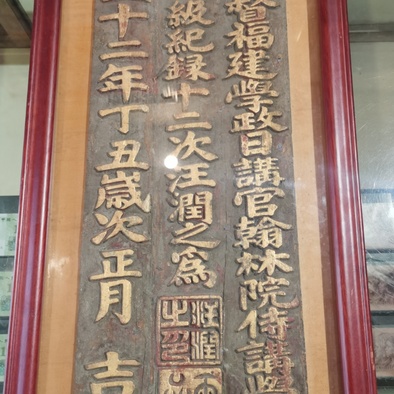 督福建學政日講官翰林院侍講學
級紀錄十二次汪潤之爲
汪潤之印
十二年丁丑歲次正月 吉